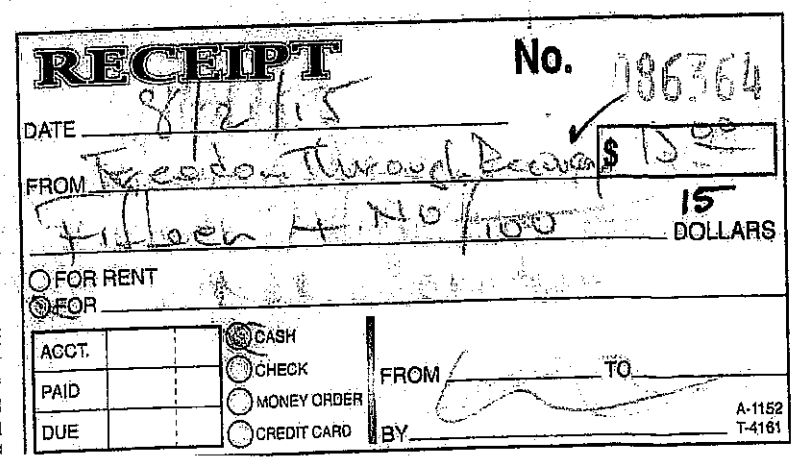 RECEIPT No. 086364
DATE 8/2/15
FROM Freedom Through Recovery $ 15 00
Fifteen + No/100 15 DOLLARS
FOR RENT
FOR
ACCT. CASH
PAID CHECK FROM TO
MONEY ORDER
DUE CREDIT CARD BY A-1152
T-4161